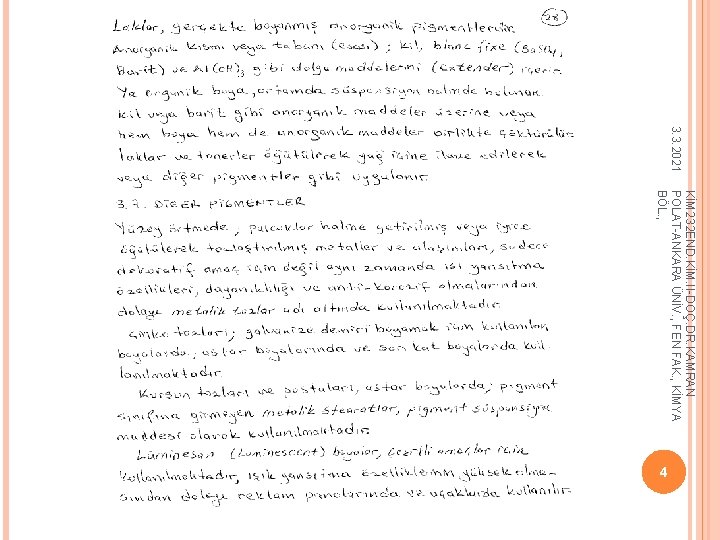 28
Laklar, gerçekte boyanmış anorganik pigmentlerdir.
Anorganik kısmı veya tabanı (esası); kil, blanc fixe (BaSO4,
Barit) ve Al(OH)3 gibi dolgu maddelerini (extender) içerir.
Ya organik boya, ortamda süspansiyon halinde bulunan
kil veya barit gibi anorganik maddeler üzerine veya
hem boya hem de anorganik maddeler birlikte çöktürülür.
Laklar ve tonerler öğütülerek yağ içine ilave edilerek
veya diğer pigmentler gibi uygulanır.
3.7. DİĞER PİGMENTLER
Yüzey örtmede, pulcuklar haline getirilmiş veya iyice
öğütülerek tozlaştırılmış metaller ve alaşımları, sadece
dekoratif amaç için değil aynı zamanda ısı yansıtma
özellikleri, dayanıklılığı ve anti-korozif olmalarından
dolayı metalik tozlar adı altında kullanılmaktadır.
Çinko tozları; galvanize demiri boyamak için kullanılan
boyalarda, astar boyalarında ve son kat boyalarda kul-
lanılmaktadır.
Kurşun tozları ve pastaları, astar boyalarda; pigment
sınıfına girmeyen metalik stearatlar, pigment süspansiyon
maddesi olarak kullanılmaktadır.
Lüminesan (Luminescent) boyalar, çeşitli amaçlar için
kullanılmaktadır, ışık yansıtma özelliklerinin yüksek olma-
sından dolayı reklam panolarında ve uçaklarda kullanılır.
3.3.2021
KİM232END.KİM.II-DOÇ.DR.KAMRAN
POLAT-ANKARA ÜNİV., FEN FAK., KİMYA
BÖL.,
4